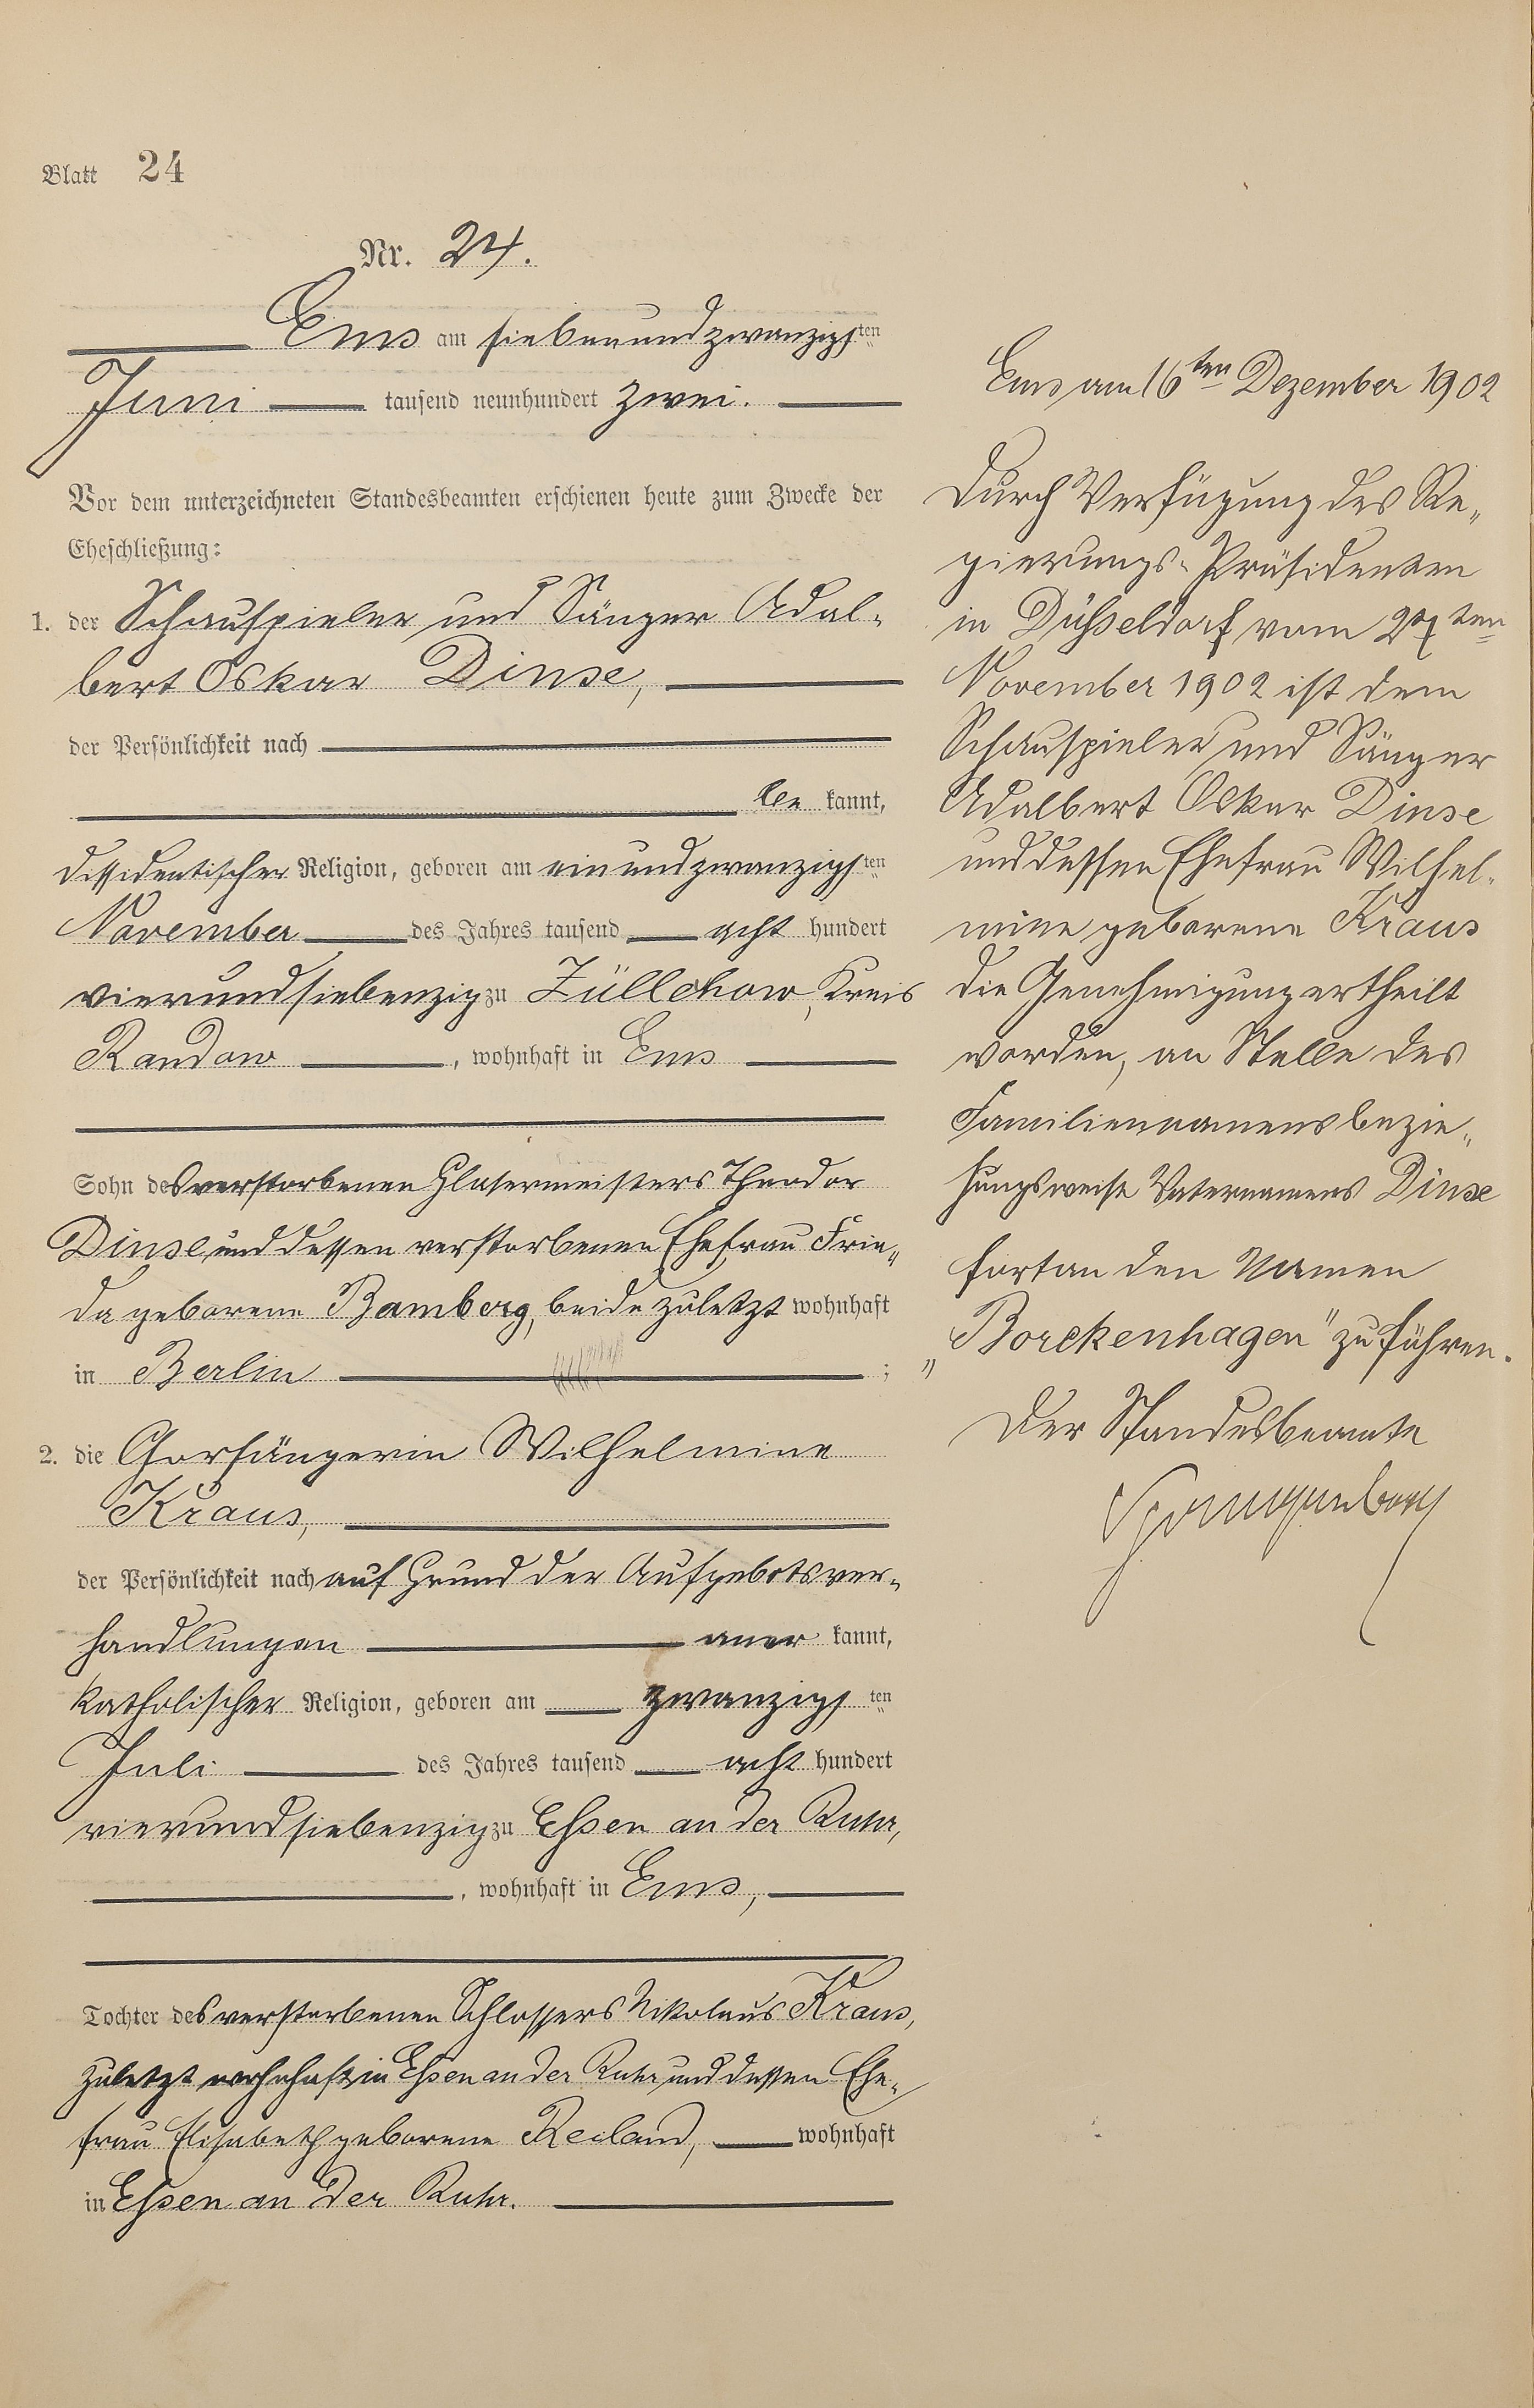 Blatt 24
Nr. 24.
Ems am siebenundzwanzigsten
Juni tausend neunhundert zwei.
Vor dem unterzeichneten Standesbeamten erschienen heute zum Zwecke der
Eheschließung:
1. der Schauspieler und Sänger Adal-
bert Oskar Dinse,
der Persönlichkeit nach
be kannt,
dissidentischer Religion, geboren am einundzwanzigsten
November des Jahres tausend acht hundert
vierundsiebenzig zu Züllchow, Kreis
Randow, wohnhaft in Ems
Sohn des verstorbenen Glasermeisters Theodor
Dinse und dessen verstorbenen Ehefrau Frie-
da geborene Bamberg, beide zuletzt wohnhaft
in Berlin ;
2. die Chorsängerin Wilhelmine
Kraus,
der Persönlichkeit nach auf Grund der Aufgebotsver-
handlungen aner kannt,
katholischer Religion, geboren am zwanzigsten
Juli des Jahres tausend acht hundert
vierundsiebenzig zu Essen an der Ruhr,
, wohnhaft in Ems,
Tochter des verstorbenen Schlossers Nikolaus Kraus,
zuletzt wohnhaft in Essen an der Ruhr und dessen Ehe-
frau Elisabeth geborene Reiland, wohnhaft
in Essen an der Ruhr.
Ems am 16ten Dezember 1902
Durch Verfügung des Re-
gierungs-Präsidenten
in Düsseldorf vom
November 1902 ist dem
Schauspieler und Sänger
Adalbert Oskar Dinse
und dessen Ehefrau Wilhel-
mine geborene Kraus
die Genehmigung ertheilt
worden, an Stelle des
Familiennamens bezie-
hungsweise Vaternamens Dinse
fortan den Namen
„Borckenhagen" zu führen.
Der Standesbeamte